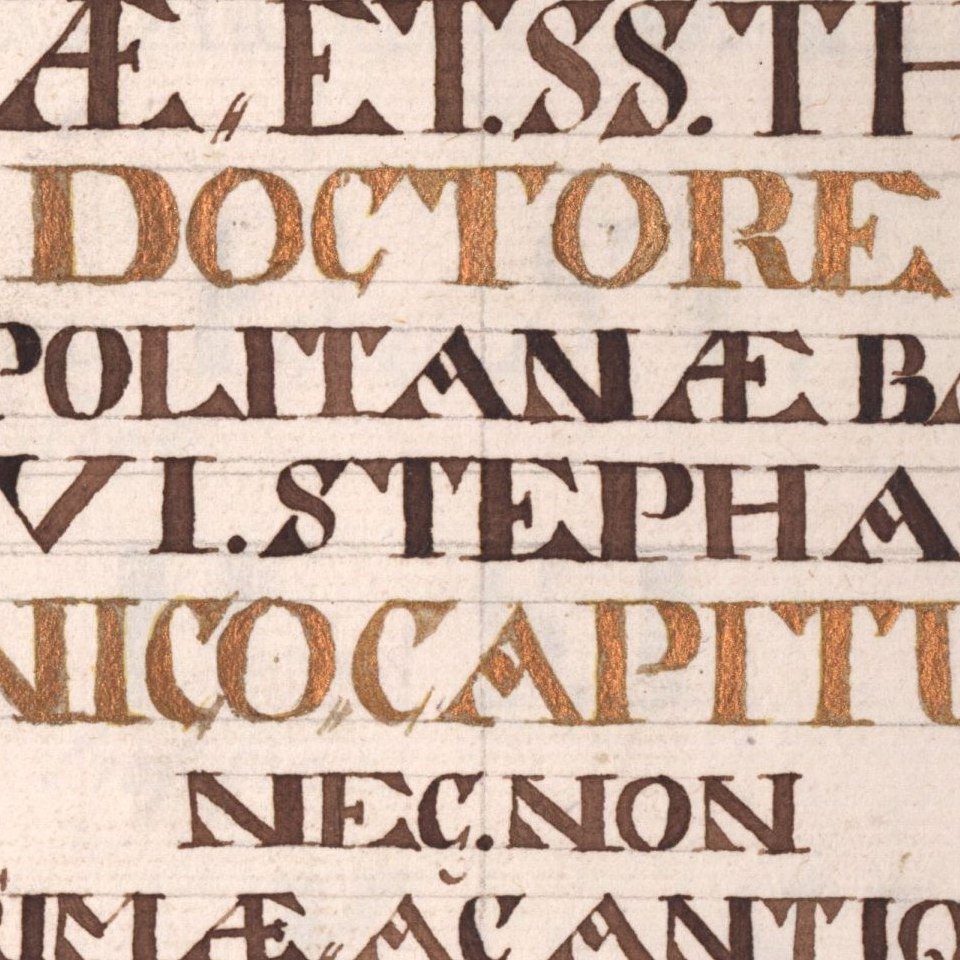 Æ, ET.SS.TH
DOCTORE
POLITANÆ BA
VI.STEPHA
NICO CAPITU
NEC.NON
IMÆ, AC ANTIQ